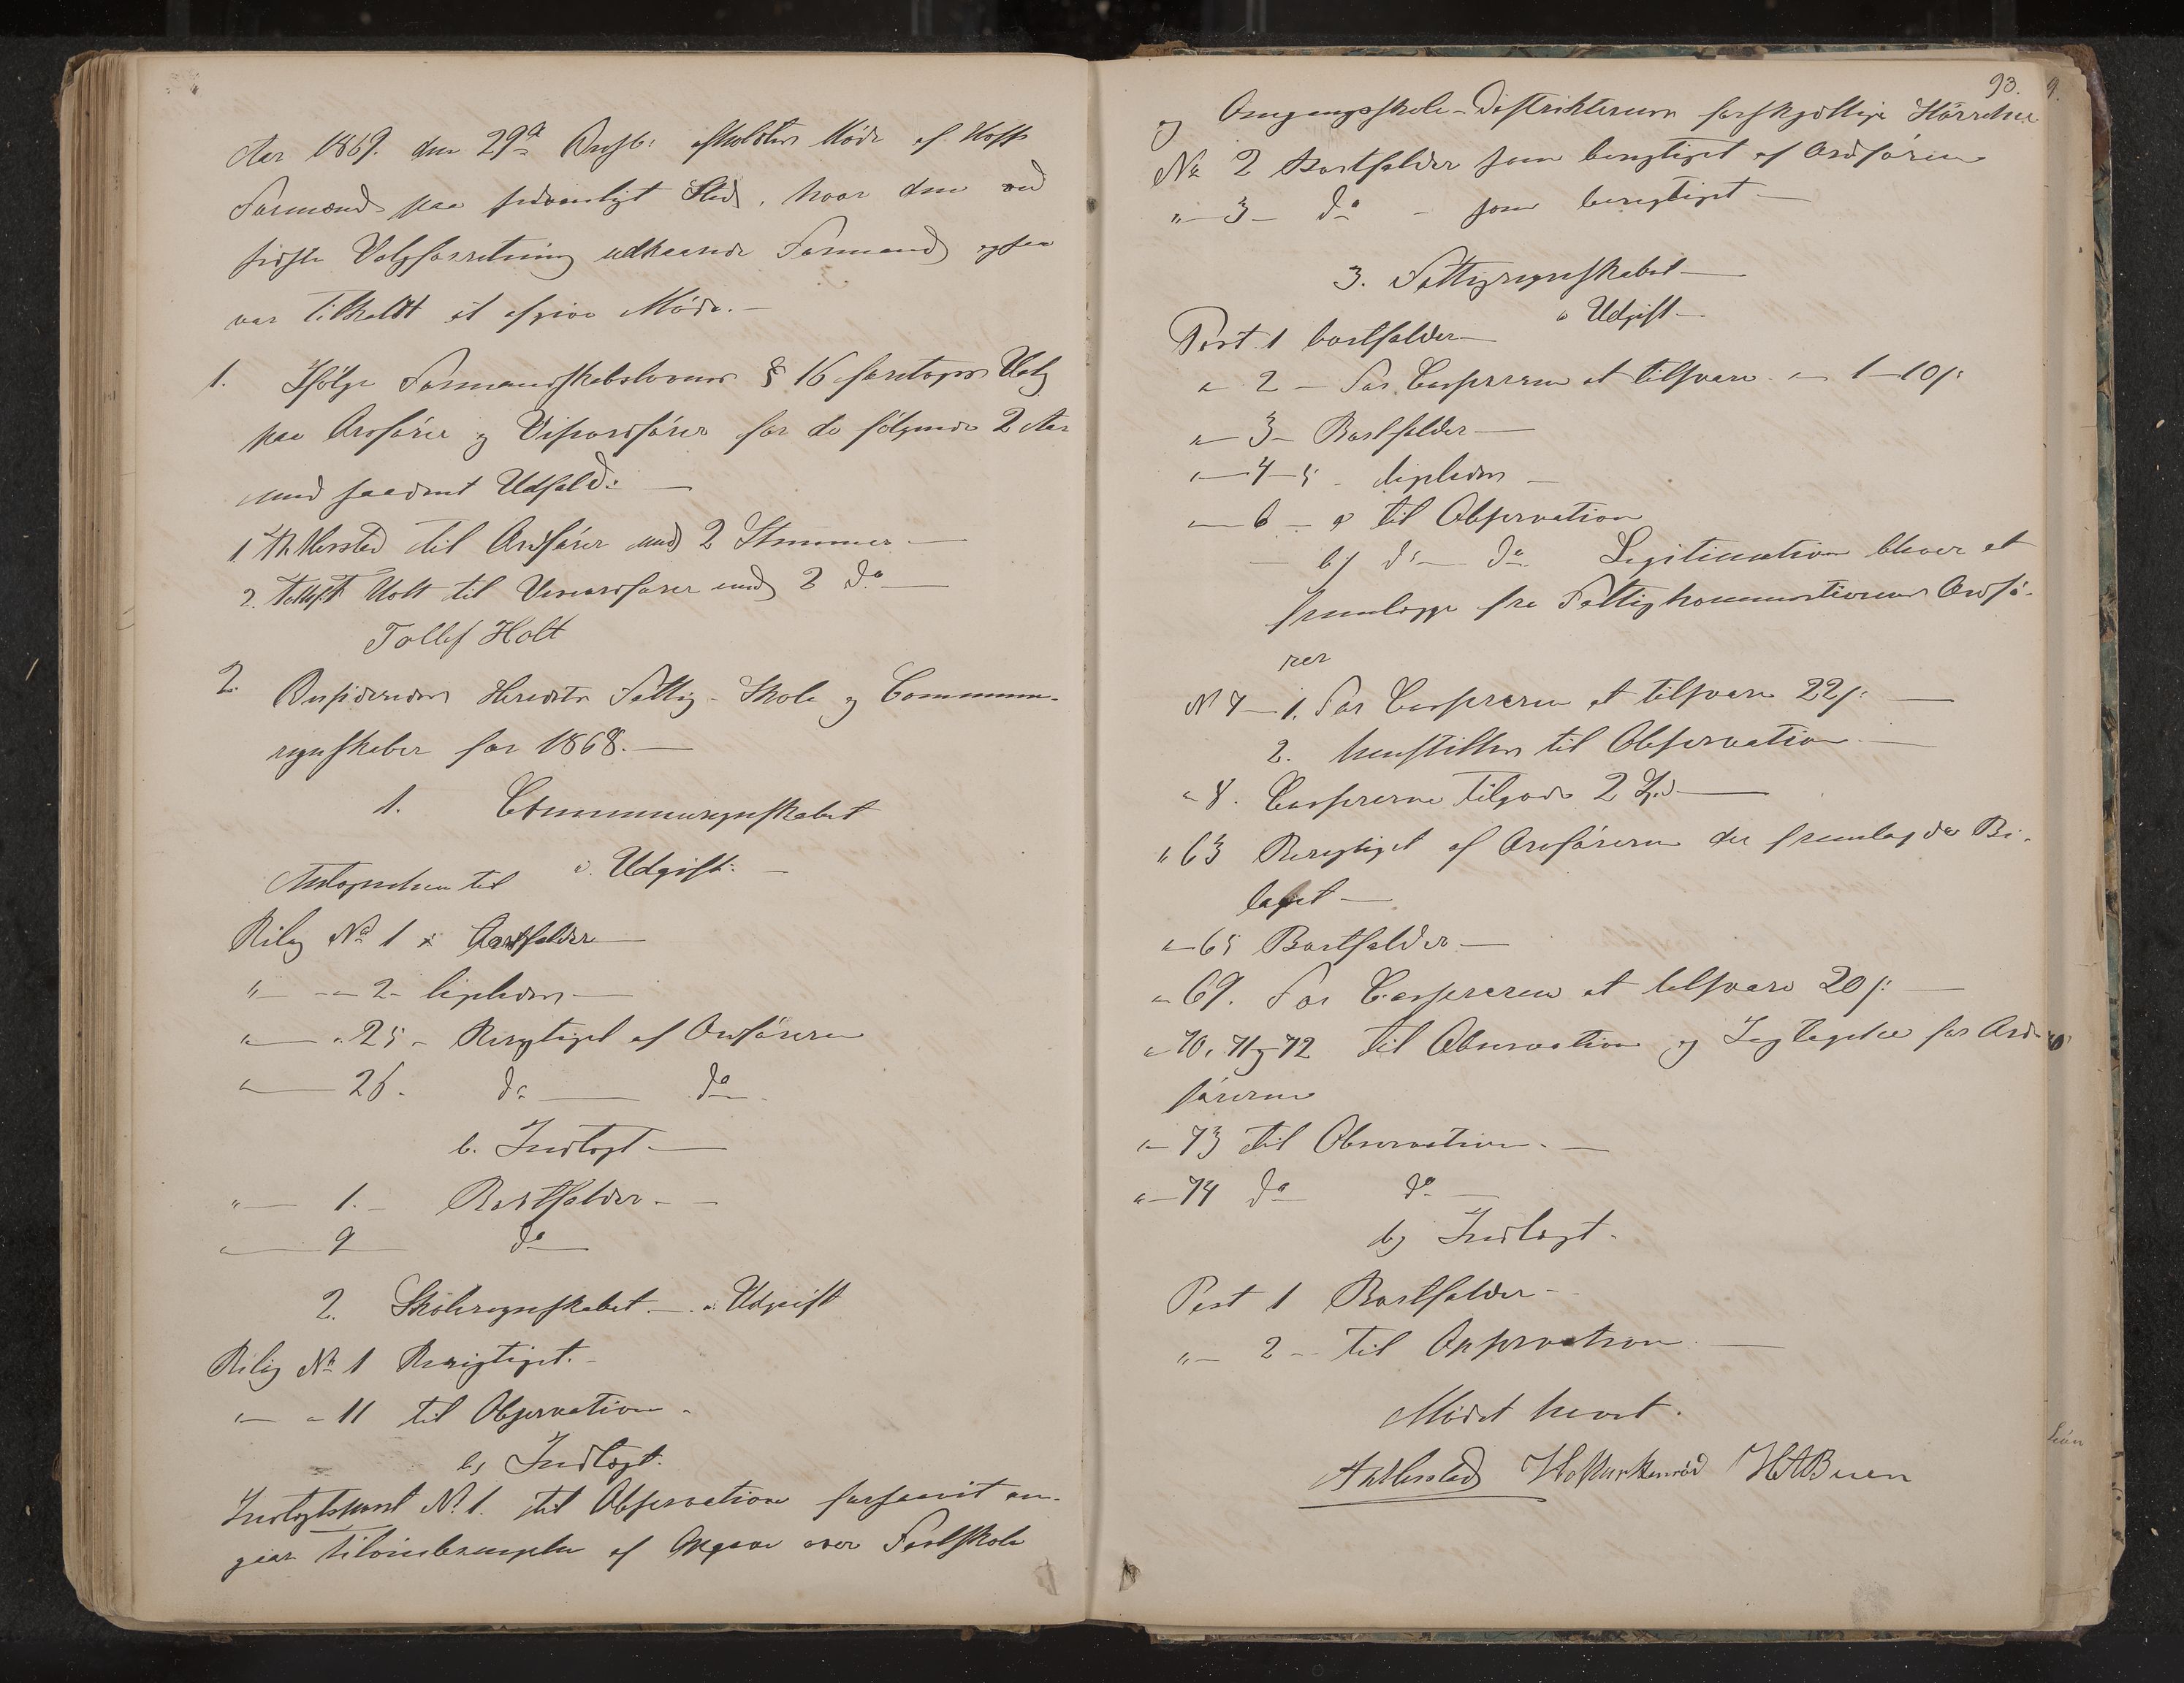 Aar 1869. den 29de Decbr: afholdtes Møde af Holts
Formænd paa sædvanligt Sted, hvor den ved
sidste Valgforretning udkaarede Formænd ogsaa
var tilkaldt at afgive Møde. —
1. Ifølge Formandskabslovens § 16 foretoges Valg
paa Ordfører og Viseordfører for de følgende 2 Aar
med saadant Udfald: —
1 til Ordfører med 2 Stemmer —
2. Tollef Holt til Viceordfører med 2 do —
Tollef Holt
2. Herredets Fattig- Skole og Commune-
regnskaber for 1868. —
1. Communeregnskabet
Antegnelsen til a. Udgift: —
Bilag No 1 Bortfalder —
" — " 2 — ligeledes —
" — " 25 — Berigtiget af Ordføreren
" — 26. do — do.
b. Indtægt —
" — 1. — Bortfalder. —
" — 9 — do —
2. Skoleregnskabet. — a. Udgift
Bilag No 1 Berigtiget. —
" — " 11 til Observation.
b) Indtægt.
Indtægtspost No 1. til Observation forsaavidt an-
gaar af Opgave over Fastskole
93.
og Omgangsskole-Distrikternes forskjellige
No 2 Bortfalder som berigtiget af Ordføreren
" — 3 — do — som berigtiget —
3. Fattigregnskabet —
a Udgift —
Post 1 bortfalder —
" 2 — For Cassereren at tilsvare — 1 — 10 s:
" — 3 — Bortfalder —
" — 4 — 5 — ligeledes —
" — 6 — a til Observation
— b) do — do Legitimation bliver at
fremlægge fra Fattigkommissionens Ordfø-
rer
No 7 — 1. For Cassereren at tilsvare 22 s: —
2. henstilles til Observation —
" 8. Cassereren tilgode 2 —
" 63 Berigtiget af Ordføreren der fremlagde Bi-
laget —
" — 65 Bortfalder —
" 69. For Cassereren at tilsvare 20 s: —
" 70, 71 og 72 til Observation og Iagttagelse for Ord-
førerne
" — 73 til Observation. —
" — 74 do do —
b) Indtægt.
Post 1 Bortfalder —
" — 2 — til Opservation —
Mødet hævet.
HABuen